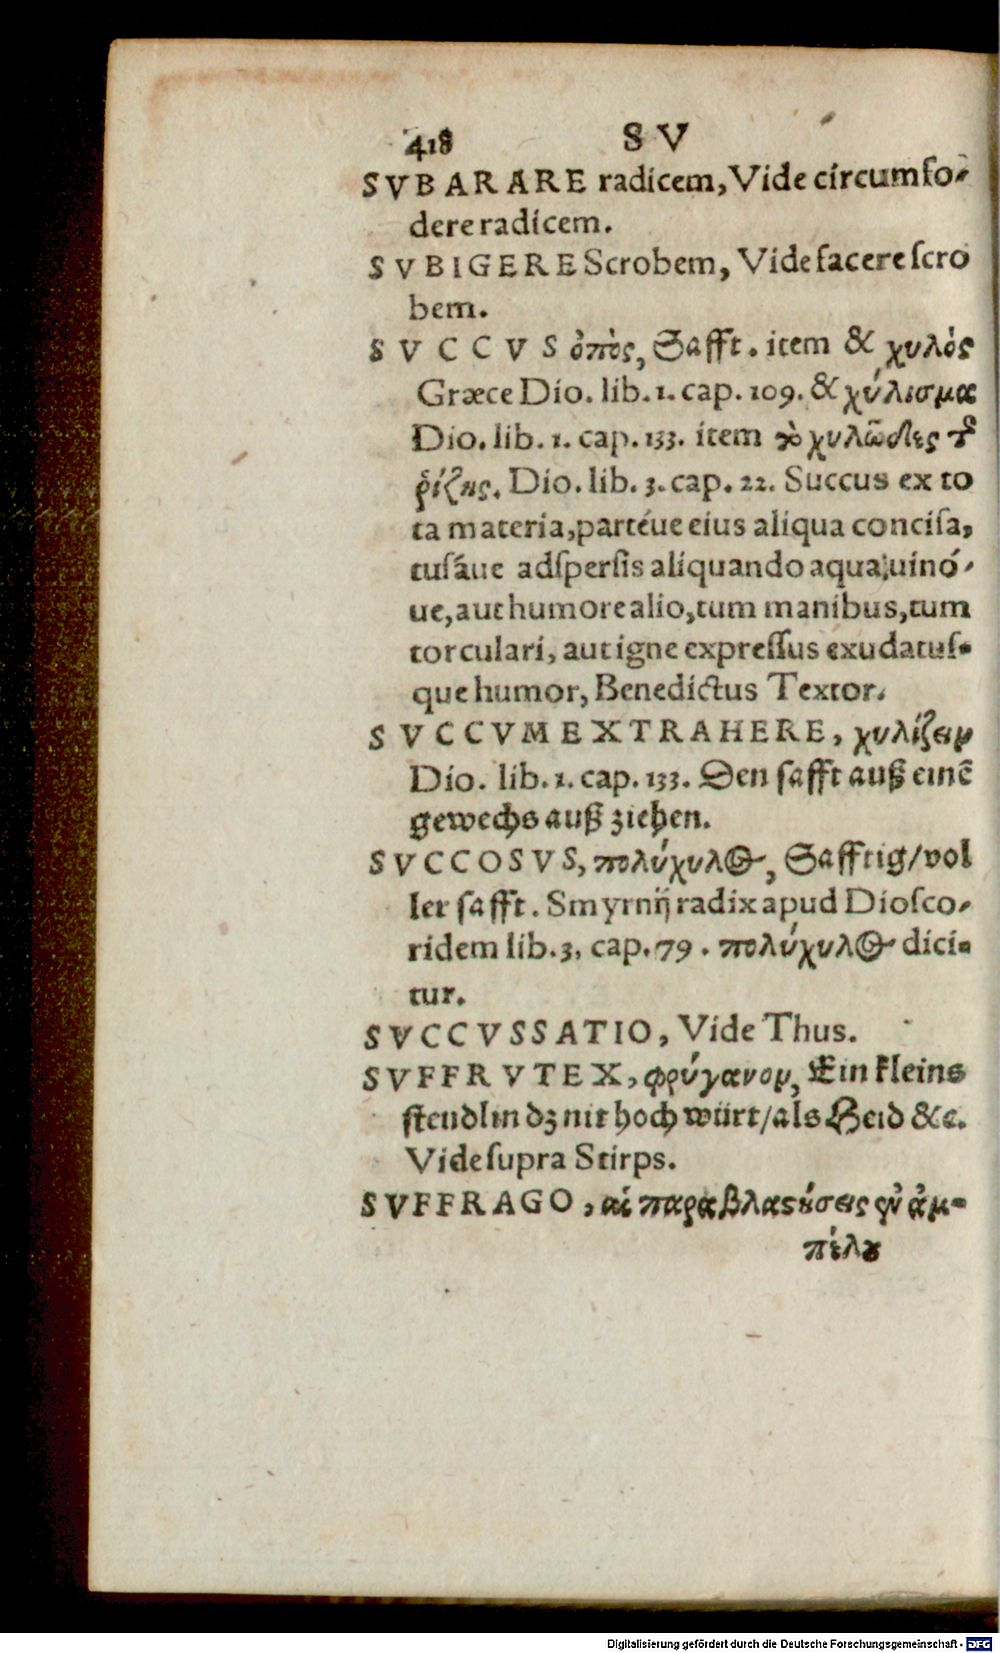 418 SV
SVBARARE radicem, Vide circumfo-
dere radicem.
SVBIGERE Scrobem, Vide facere scro
bem.
SVCCVS ὀπὸς, Safft. item & χυλὸς
Græce Dio. lib. 1. cap. 109. & χύλισμα
Dio. lib. 1. cap. 133. item τὸ χυλῶδες τ῀
ῥίζης. Dio. lib. 3. cap. 22. Succus ex to
ta materia, partéue eius aliqua concisa,
tusáue adspersis aliquando aqua, uinó-
ue, aut humore alio, tum manibus, tum
torculari, aut igne expreſſus exudatuſ-
que humor, Benedictus Textor.
SVCCVM EXTRAHERE, χυλίζειν
Dio. lib. 1. cap. 133. Den ſafft auß einē
gewechs auß ziehen.
SVCCOSVS, πολύχυλος, Safftig/vol
ler ſafft. Smyrnij radix apud Dioſco-
ridem lib. 3. cap. 79. πολύχυλος dici-
tur.
SVCCVSSATIO, Vide Thus.
SVFFRVTEX, φρύγανον, Ein kleins
ſteudlin dz nit hoch würt/als Heid &c.
Vide ſupra Stirps.
SVFFRAGO, αἱ παραβλαςήσεις ἐν ἀμ-
πέλȣ
Digitalisierung gefördert durch die Deutsche Forschungsgemeinschaft - DFG